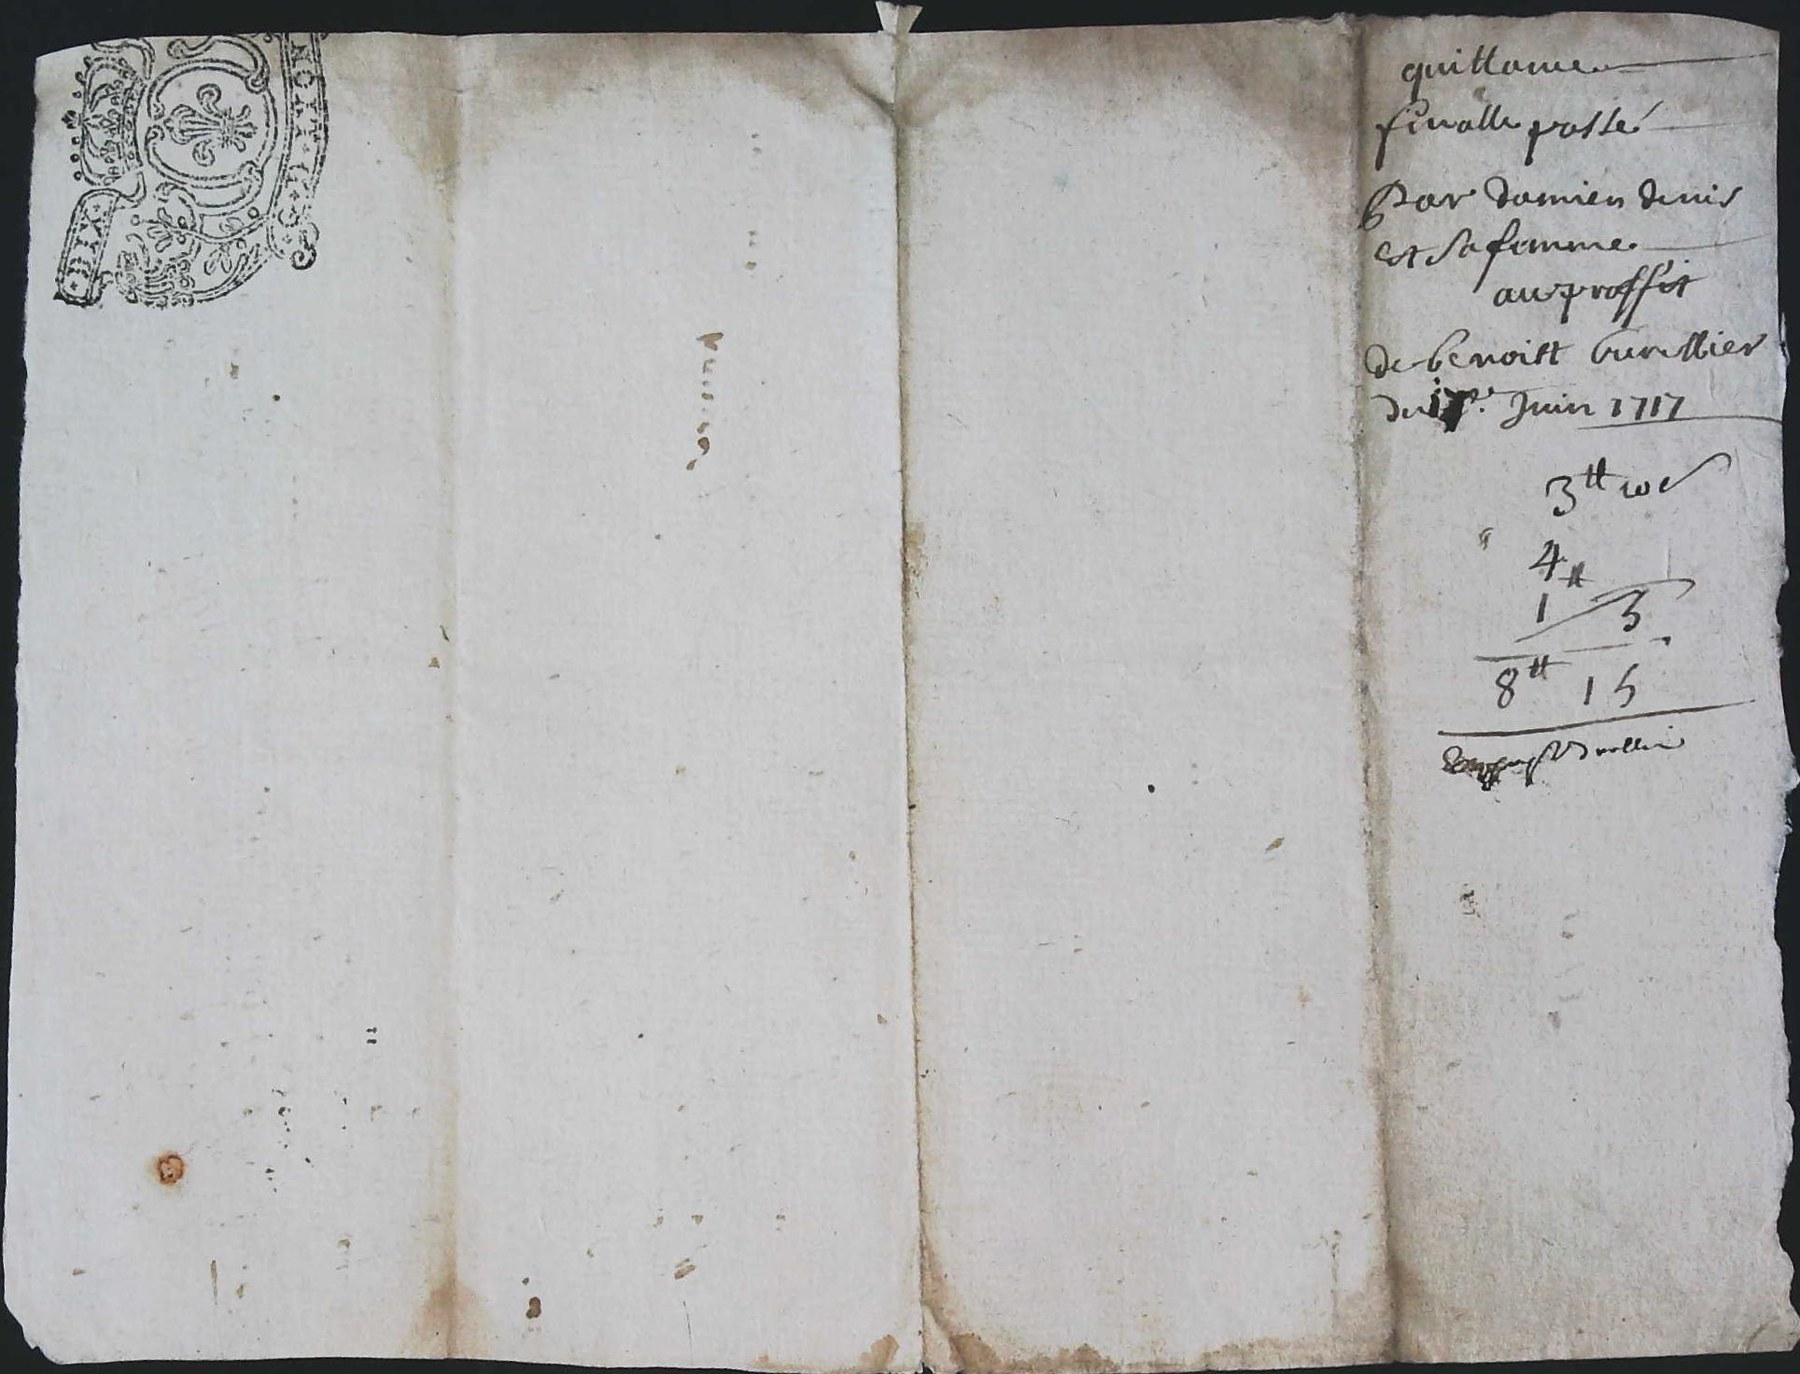 quittance
finalle passé
Par damien denis
et sa femme
au proffit
de benoist burellier
du Juin 1717
3 ₶ 10 s
4 ₶
1 5
8 ₶ 15